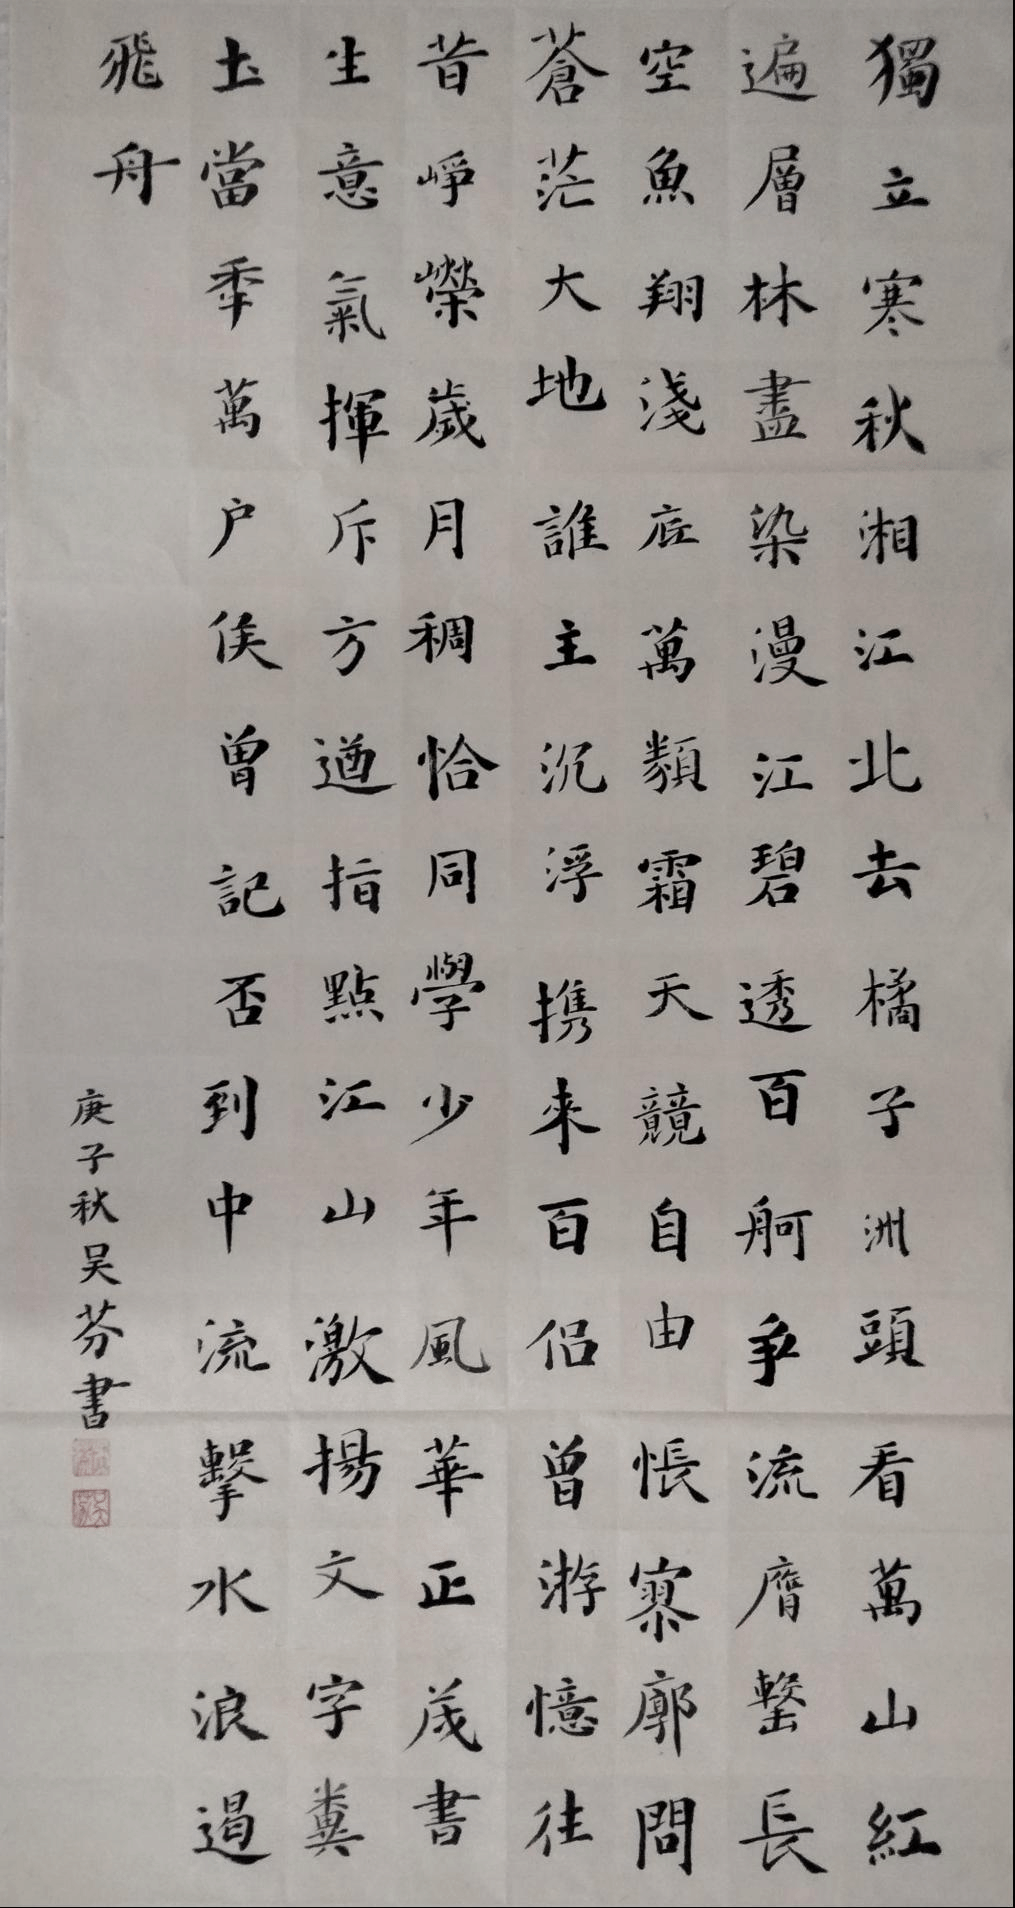 獨立寒秋湘江北去橘子洲頭看萬山紅
遍層林盡染漫江碧透百舸爭流膺擊長
空魚翔淺底萬類霜天競自由悵寥廓問
蒼茫大地誰主沉浮攜來百侣曾游憶往
昔崢嶸歲月稠恰同學少年風華正茂書
生意氣揮斥方遒指點江山激揚文字糞
土當年萬户侯曾記否到中流擊水浪遏
飛舟
庚子秋吴芬書